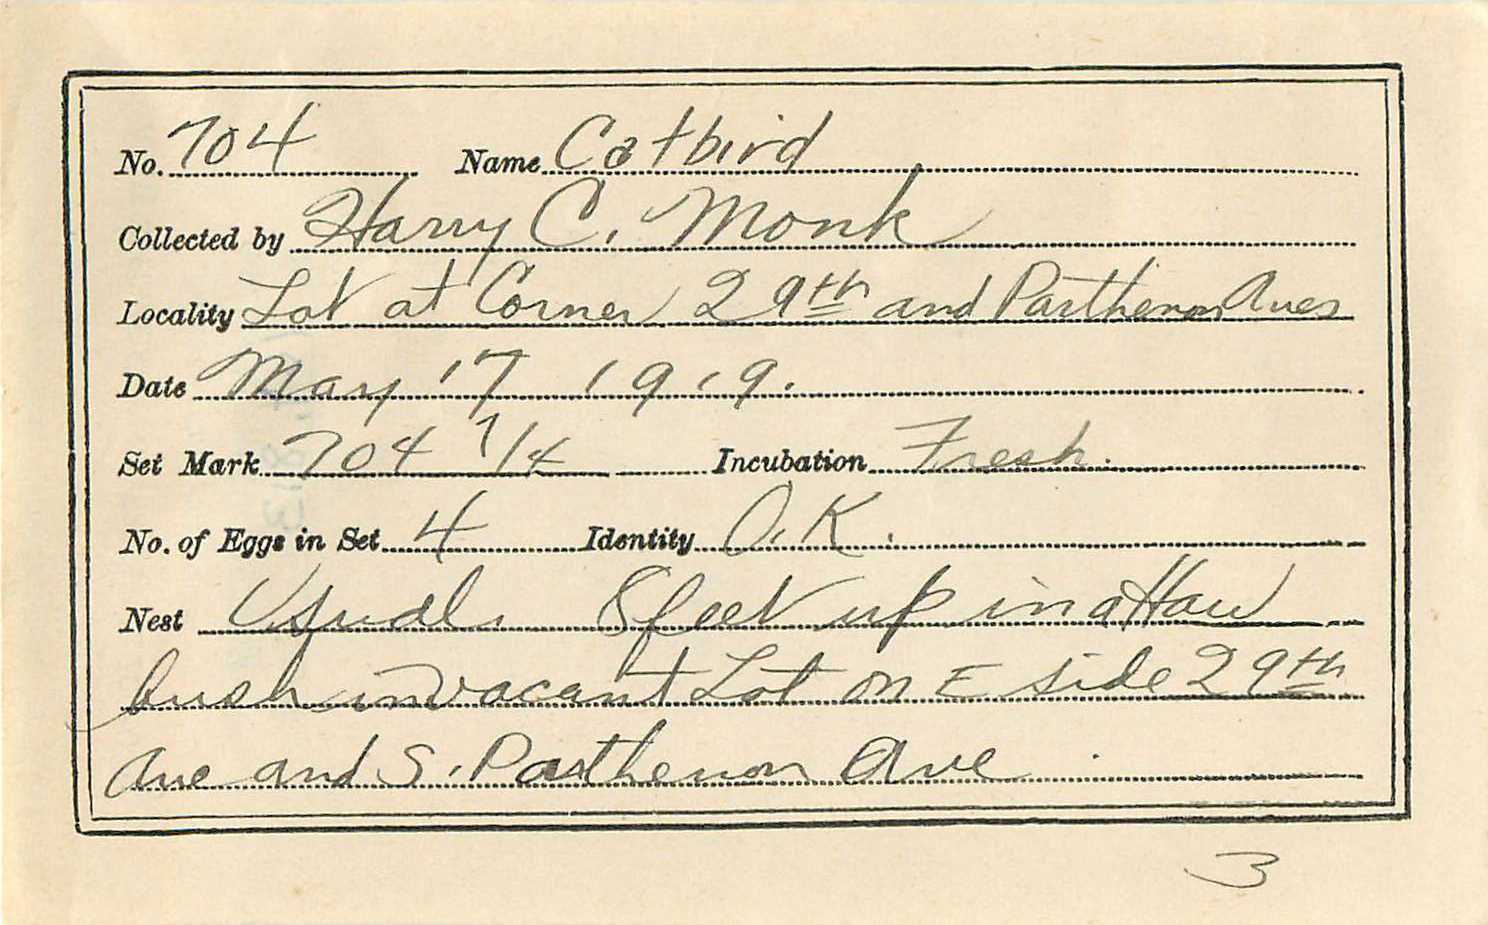 No. 704 Name Catbird
Collected by Harry C. Monk
Locality Lot at Corner 29th and Parthenon Aves
Date May 17 1919.
Set Mark 704 1/4 Incubation Fresh.
No. of Eggs in Set 4 Identity O.K.
Nest Usual. 8 feet up in a Haw
bush in vacant Lot on E side 29th
Ave and S. Parthenon Ave
3